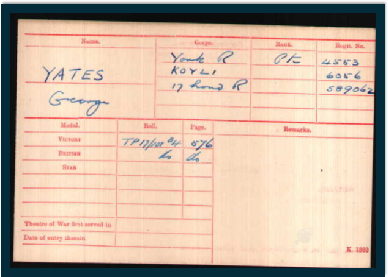 Name. Corps. Rank. Regtl. No.
YATES York R Pte 4553
George KOYLI 6056
17 Lond R 589062
Medal. Roll. Page. Remarks.
Victory TP17/101 B4 576
British do do
Star
Theatre of War first served in
Date of entry therein K. 1380